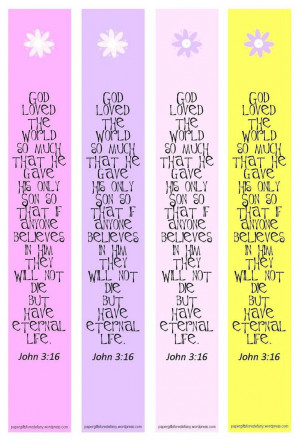 GOD
LOVED
THE
WORLD
SO MUCH
THAT HE
GAVE
HIS ONLY
SON SO
THAT IF
ANYONE
BELIEVES
IN HIM
THEY
WILL NOT
DIE
BUT
HAVE
ETERNAL
LIFE.
John 3:16
papergiftsforestefany.wordpress.com
GOD
LOVED
THE
WORLD
SO MUCH
THAT HE
GAVE
HIS ONLY
SON SO
THAT IF
ANYONE
BELIEVES
IN HIM
THEY
WILL NOT
DIE
BUT
HAVE
ETERNAL
LIFE.
John 3:16
papergiftsforestefany.wordpress.com
GOD
LOVED
THE
WORLD
SO MUCH
THAT HE
GAVE
HIS ONLY
SON SO
THAT IF
ANYONE
BELIEVES
IN HIM
THEY
WILL NOT
DIE
BUT
HAVE
ETERNAL
LIFE.
John 3:16
papergiftsforestefany.wordpress.com
GOD
LOVED
THE
WORLD
SO MUCH
THAT HE
GAVE
HIS ONLY
SON SO
THAT IF
ANYONE
BELIEVES
IN HIM
THEY
WILL NOT
DIE
BUT
HAVE
ETERNAL
LIFE.
John 3:16
papergiftsforestefany.wordpress.com